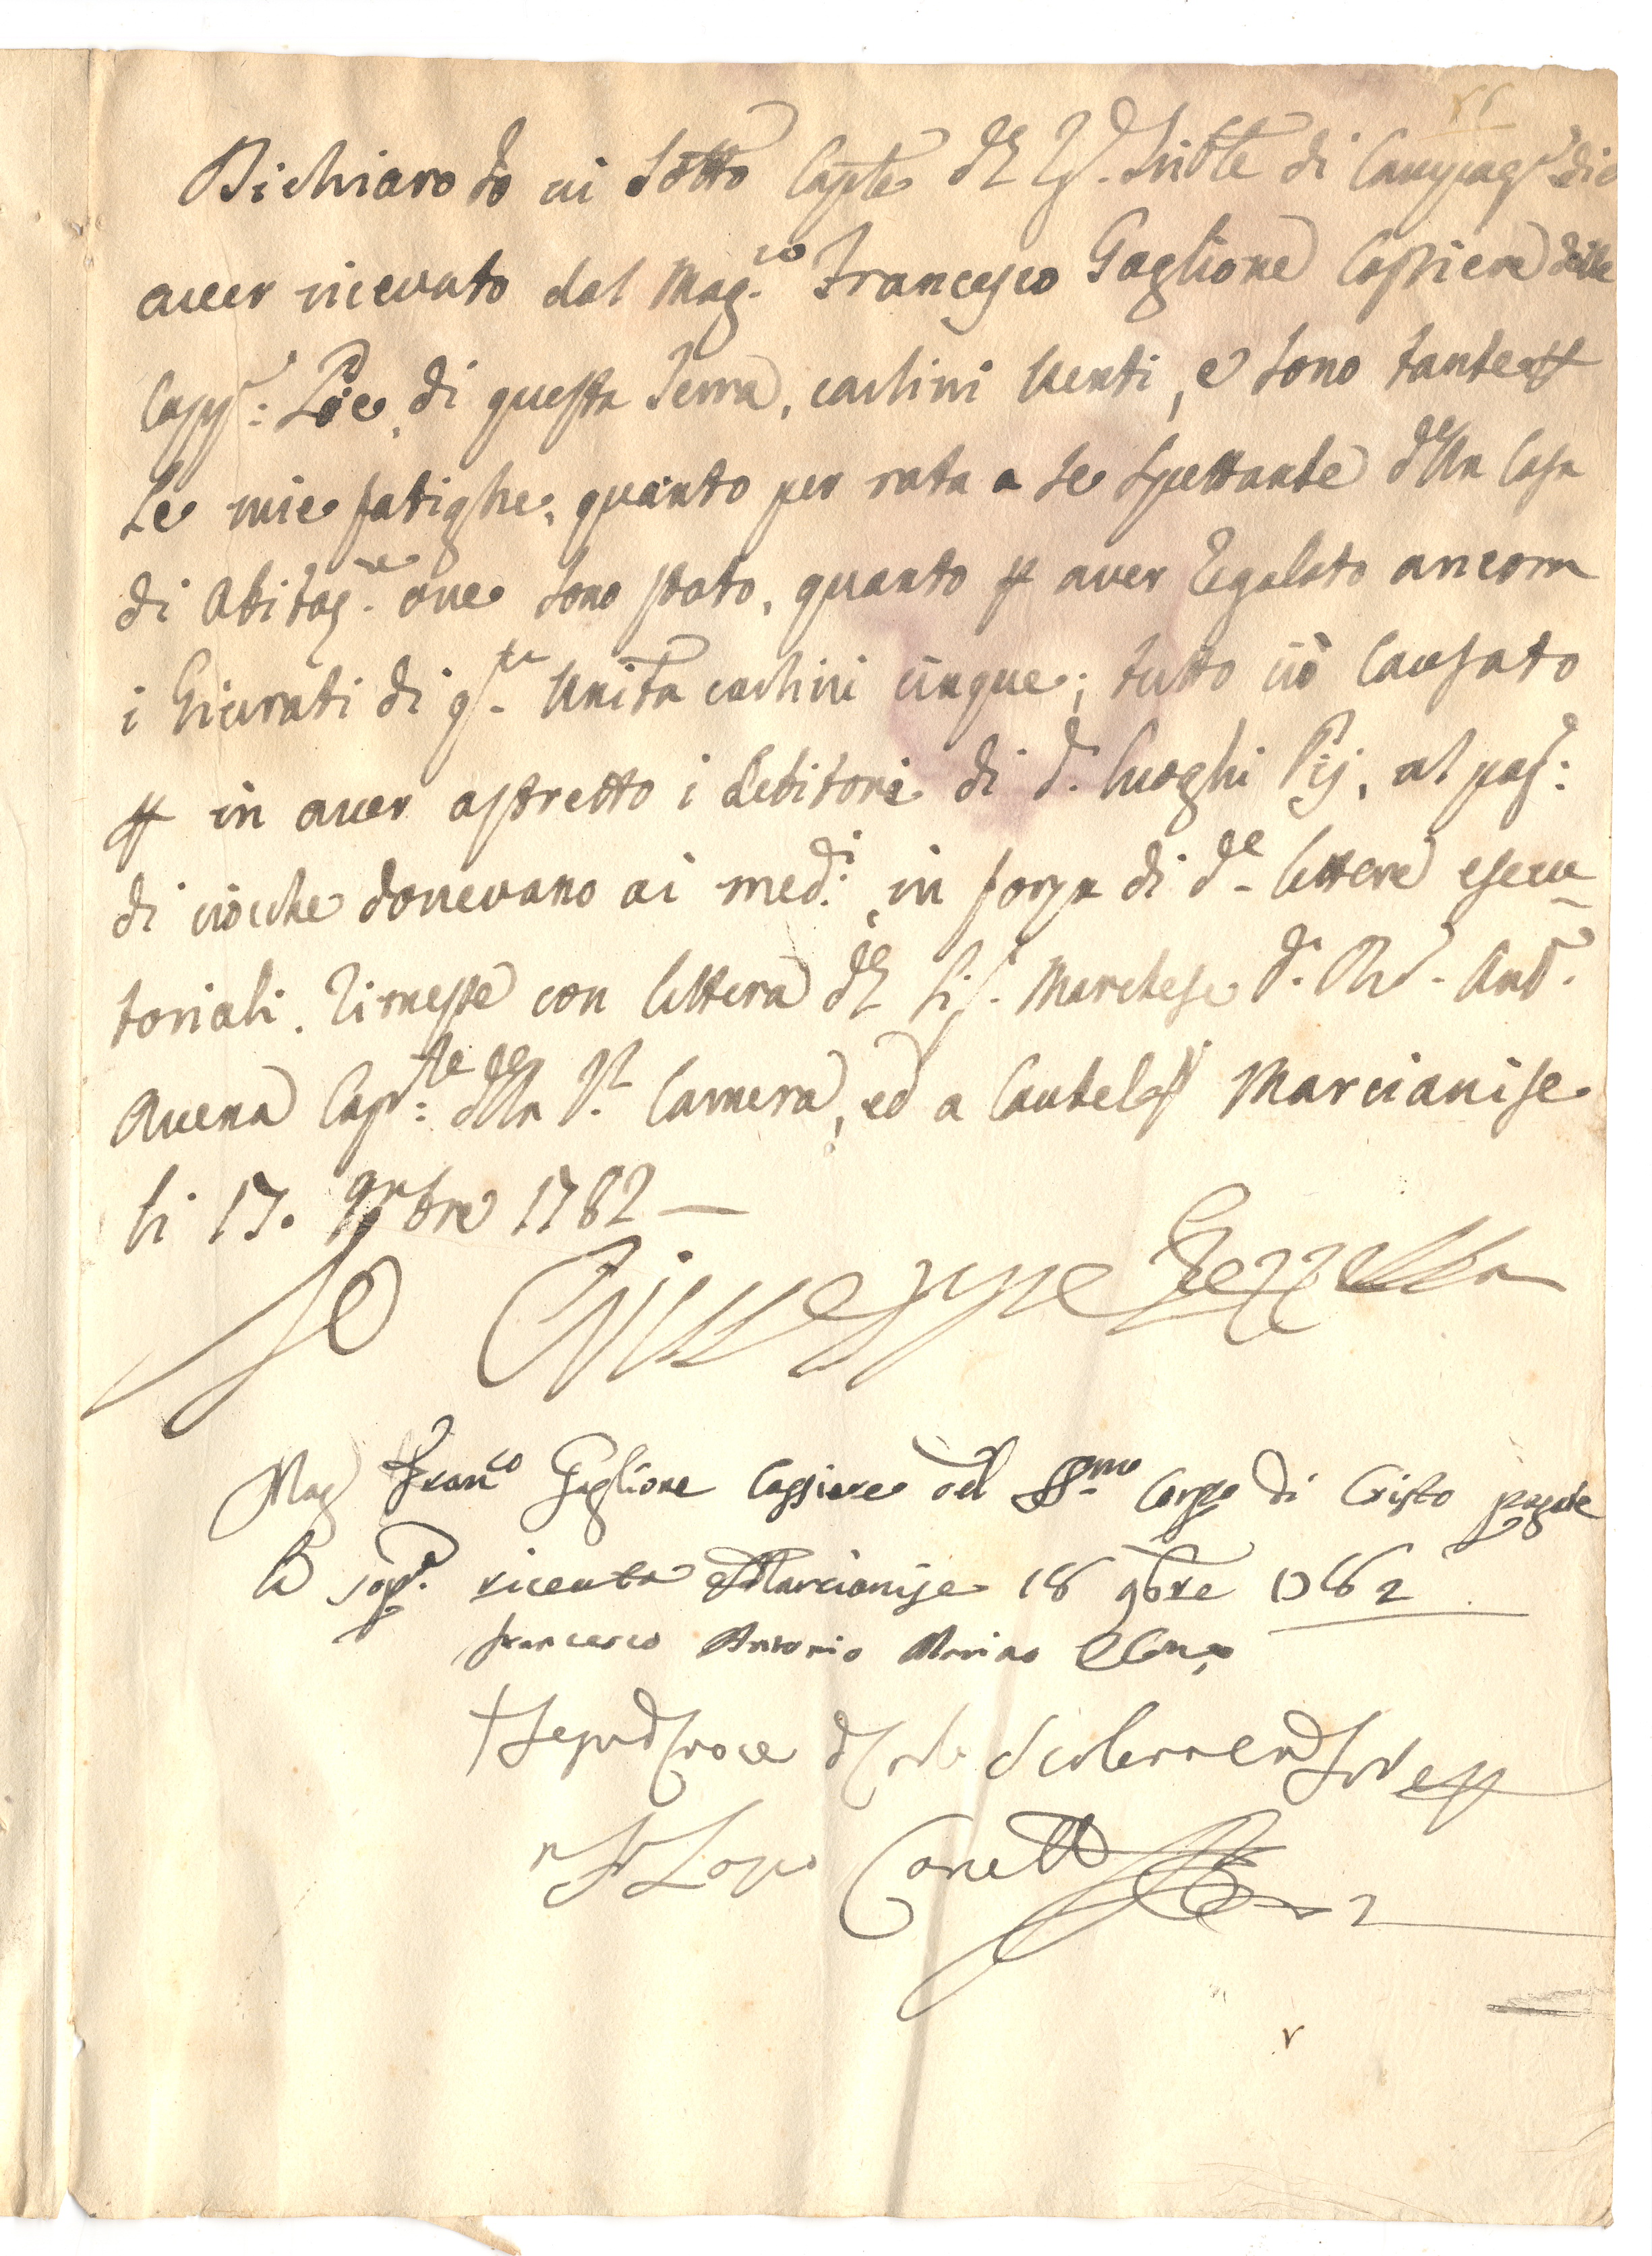 Dichiaro Io qui sotto Capte del Rl. Trible di Campag. di
aver ricevuto dal Mag.co Francesco Gaglione Cassiere delle
Capp.: Lòe. di questa Terra, carlini venti, e sono tante p
le mie fatighe, quanto per rata a se spettante d'Una Casa
di Abitaz.ne ove sono stato, quanto p aver Regalato ancora
i Giurati di q.ta Unità carlini cinque; tutto ciò causato
p in aver astretto i debitori di d. luoghi Pij, al pag.:
di ciocche dovevano ai med.i, in forza di d.e lettere esecu
toriali. Rimesse con lettera del Sig. Marchese D. And.
Avena Cap. della R. Camera, ed a cautela Marcianise
li 17. 9mbre 1762 —
Io Giuseppe Pezzella
Mag Fran.co Gaglione Cassiere del SS.mo Corpo di Cristo pagate
la sop.a ricevuta Marcianise 18 9bre 1762
Francesco Antonio Marino
+ Segno di Croce di